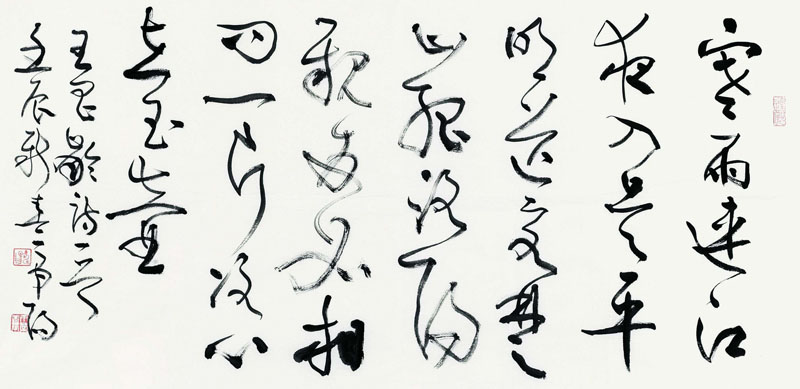 寒雨連江
夜入吳平
明送客楚
山孤洛陽
親友如相
問一片冰心
在玉壺
王昌齡詩一首
壬辰新春